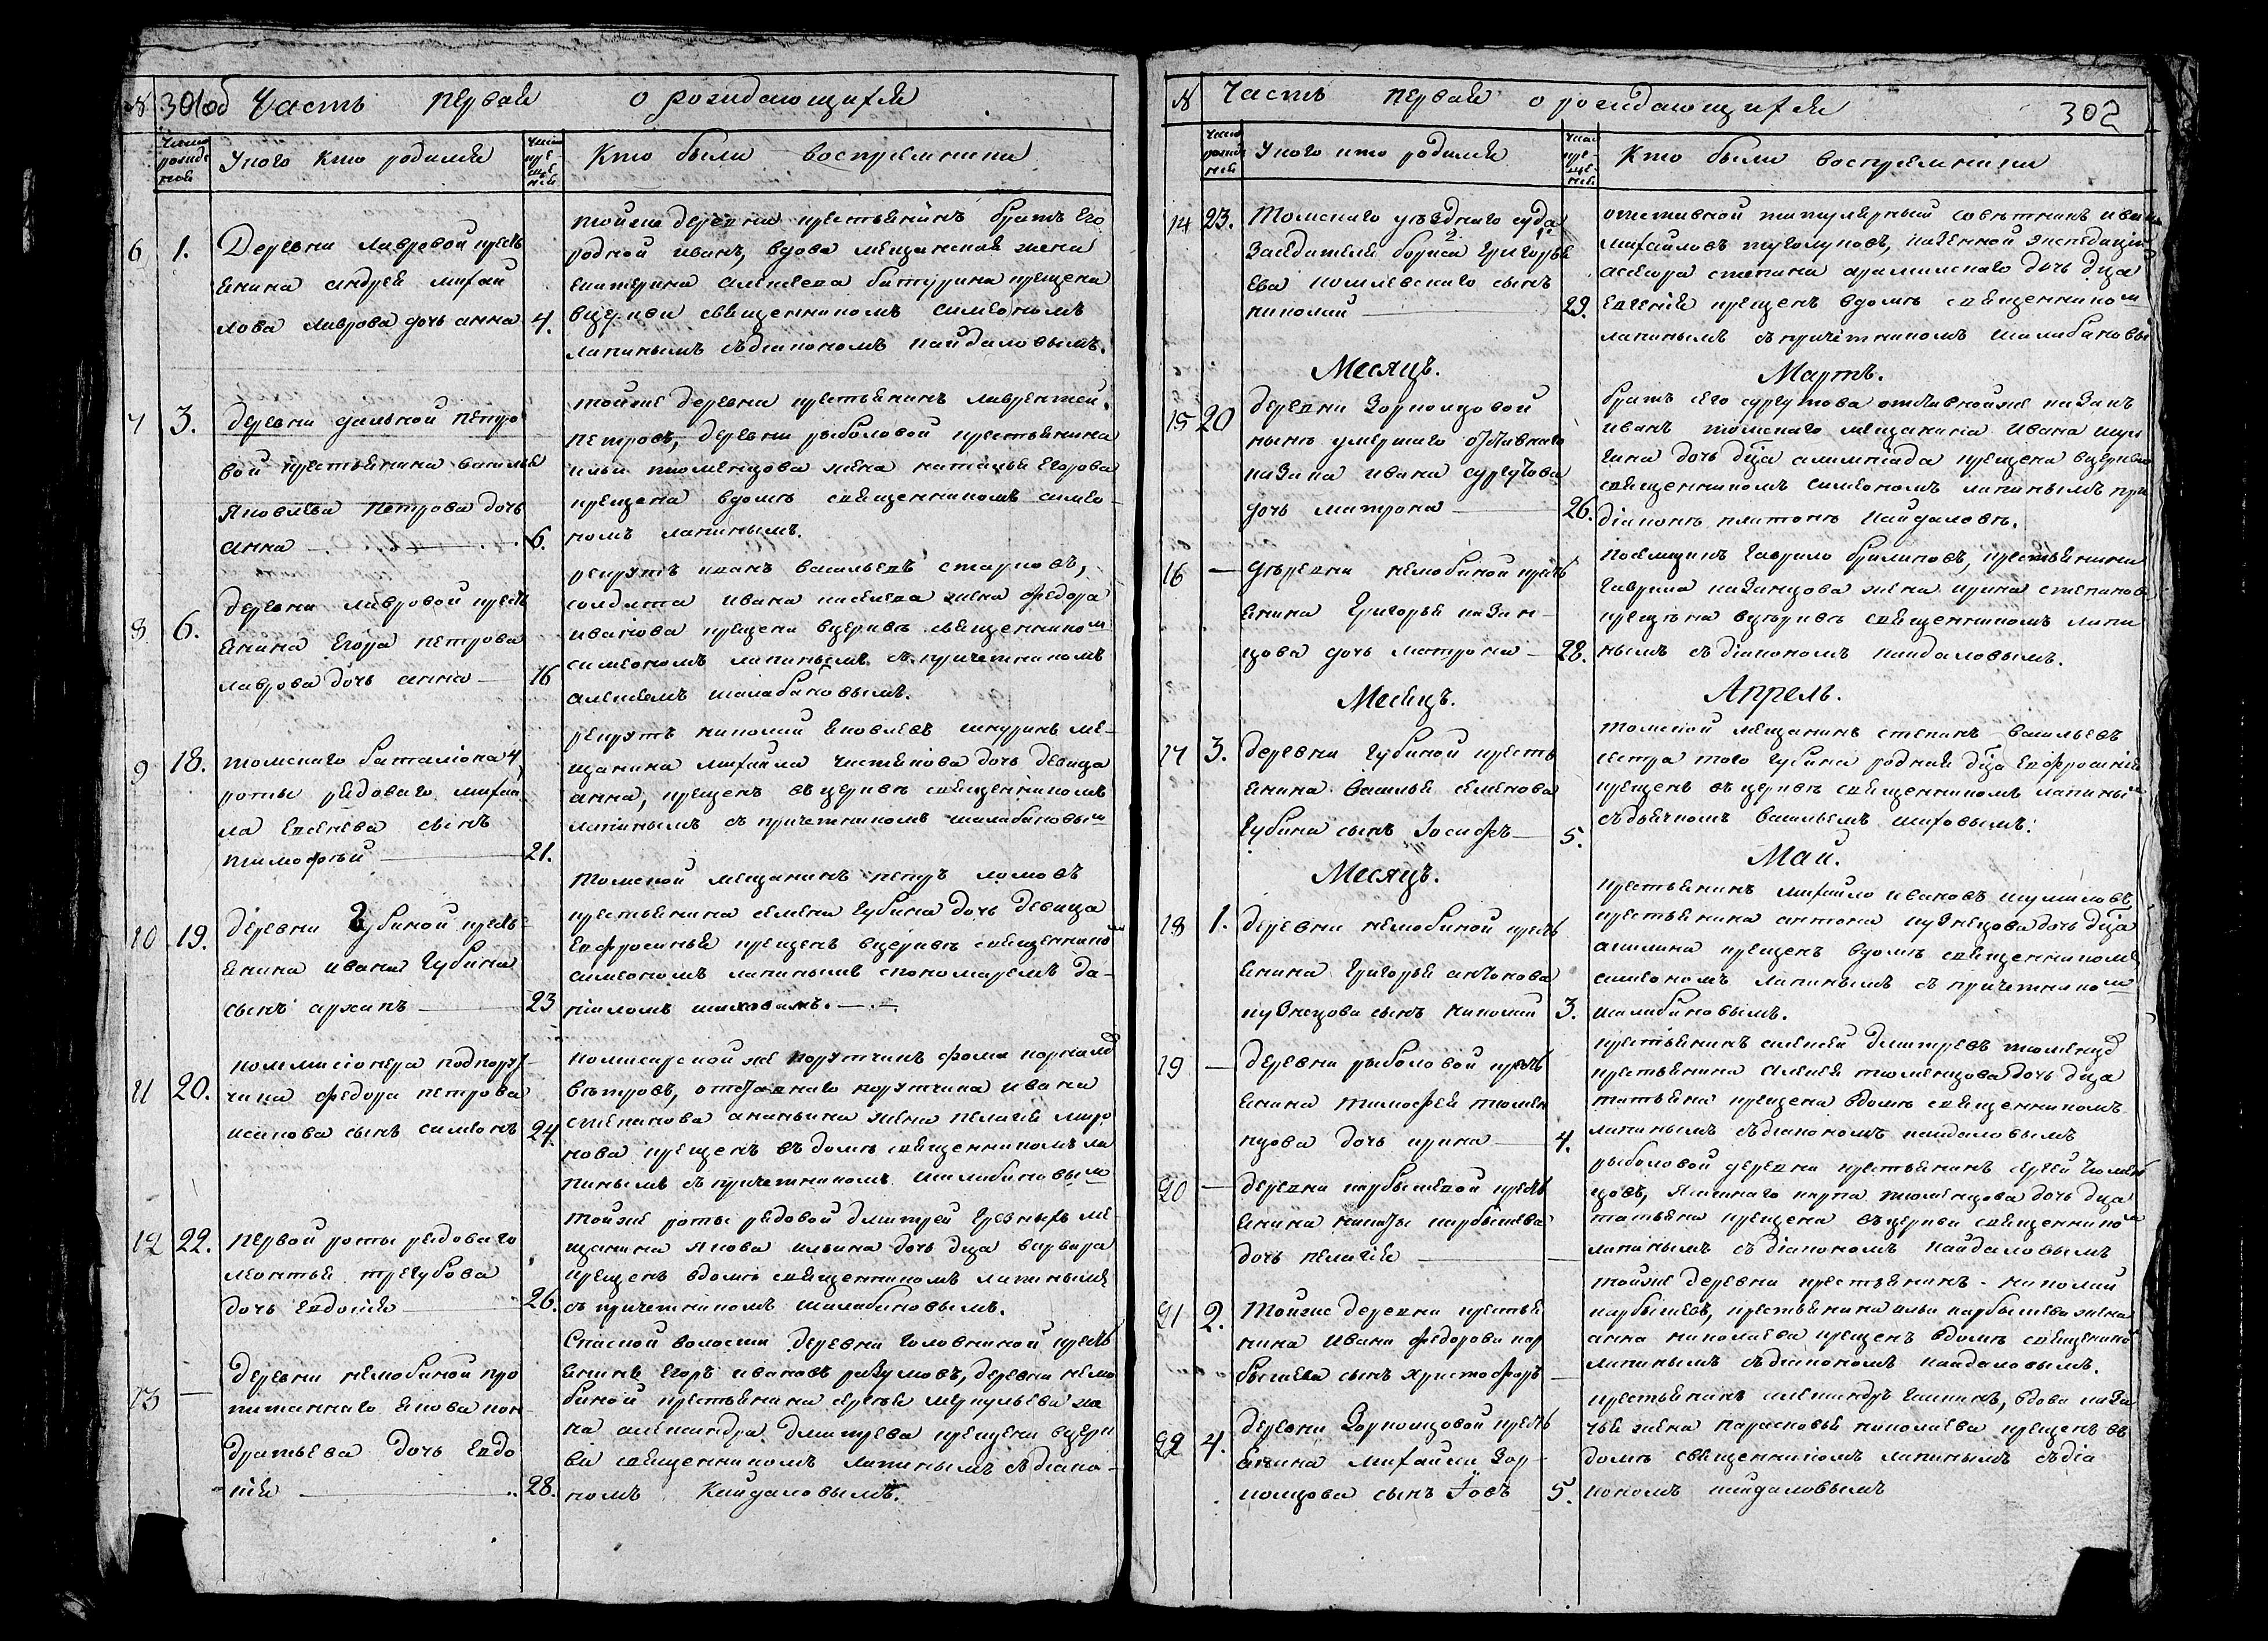 № 301об Часть первая о рождающихся
Число рожде нія
У кого кто родился
Число кре ще нія
Кто были восприемники
6 1.
Деревни лавровой крестъ
янина андрея михаи
лова лаврова дочь анна 4.
тойже деревни крестьянинъ братъ его
родной иванъ, вдова мещанская жена
екатерина алексеева батурина крещена
вцеркви священникомъ симеономъ
лапинымъ съ діакономъ кайдаловымъ.
7 3.
деревни дальной петро
вой крестьянина василья
яковлева петрова дочь
анна 6.
тойже деревни крестьянинъ лаврентей
петровъ, деревни рыболовой крестьянина
ильи тюменцова жена наталья егорова
крещена вдоме священникомъ симео-
номъ лапинымъ.
8 6.
деревни лавровой крестъ
янина егора петрова
лаврова дочь анна 16
рекрутъ иванъ васильевъ старковъ,
солдата ивана киселева жена федора
иванова крещена вцеркве священником
симеономъ лапинымъ съ причетникомъ
алексеемъ шалабановымъ.
9 18.
томскаго баталіона 4
роты рядоваго михаи
ла евсеева сынъ
тимофей 21.
рекрутъ николай яковлевъ шкуринъ ме-
щанина михаила чистякова дочь девица
анна, крещенъ въ церкве священникомъ
лапинымъ съ причетникомъ шалабановым
10 19.
деревни Губиной кресть
янина ивана губина
сынъ архипъ 23
томской мещанинъ петръ ломовъ
крестьянина семена губина дочь девица
евфросинья крещенъ вцеркве священнико
симеономъ лапинымъ спономаремъ да-
ніиломъ шиховымъ.
11 20.
коммисіонера подпору
чика федора петрова
исакова сынъ симеонъ 24.
комисарской же порутчикъ фома
ветровъ, отставнаго порутчика ивана
степанова ананьина жена пелагея миро
нова крещенъ въ доме священникомъ ла
пинымъ съ причетникомъ шалабановым
12 22.
первой роты рядоваго
леонтья трегубова
дочь евдокия 26.
тойже роты рядовой дмитрей грязныхъ ме-
щанина якова ильина дочь дца варвара
крещенъ вдоме священникомъ лапинымъ
съ причетникомъ шалабановымъ.
13 —
деревни нелюбиной про
питаннаго якова кон
дратьева дочь евдо
кія 28.
Спаской волости деревни головниной кресть
янинъ егоръ ивановъ разумовъ, деревни нелю
биной крестьянина сергея меркульева же
на александра дмитрева крещена вцерк
ви священникомъ лапинымъ съ діако-
номъ Кайдаловымъ.
№ Часть первая о рождающихся 302
Число рожде нія
У кого кто родился
Число кре ще нія
Кто были восприемники
14 23.
Томскаго уезднаго суда
заседателя бориса григорье
ева сынъ
николай 29.
отставной титулярный советникъ иванъ
михайловъ казенной экспедиции
асесора степана дочь дца
евгенія крещенъ вдоме священником
лапинымъ съ причетникомъ шалабановы
Месяцъ. Мартъ.
15 20
деревни Зоркольцовой
ныне умершаго отставнаго
казака ивана сургутова
дочь матрона 26.
братъ его сургутова отставной же казакъ
иванъ томскаго мещанина ивана
дочь дца олимпіада крещена вцеркве
священникомъ симеономъ лапинымъ при
діаконе платоне кайдалове.
16 —
деревни нелюбиной кресть
янина Григорья казан-
цова дочь матрона 28.
поселщикъ гаврило крестьянина
гаврила казанцова жена ирина степанова
крещена вцеркве священникомъ лапи
нымъ съ діакономъ кайдаловымъ.
Месяцъ. Апрель.
17 3.
деревни губиной кресть
янина василья семенова
губина сынъ Іосифъ 5.
томской мещанинъ степанъ васильевъ
сестра того губина родная дца евфросинія
крещенъ въ церкве священникомъ лапины
съ дьячкомъ васильемъ шиховымъ.
Месяцъ. Маи.
18 1.
деревни нелюбиной кресть
янина григорья антонова
кузнецова сынъ николай 3.
крестьянинъ михайло ивановъ шумиловъ
крестьянина антона кузнецова дочь дца
акилина крещенъ вдоме священникомъ
симеономъ лапинымъ съ причетником
шалабановымъ.
19 —
деревни рыболовой кресть
янина тимофея тюмен
цова дочь ирина 4.
крестьянинъ алексей дмитревъ тюменцо
крестьянина алексея тюменцова дочь дца
татьяна крещена вдоме священникомъ
лапинымъ съ діакономъ кайдаловымъ
20 —
деревни карбышевой кресть
янина никиты карбышева
дочь пелагія —
рыболовой деревни крестьянинъ сергей тюмен
цовъ, ямскаго карпа тюменцова дочь дца
татьяна крещена въ церкви священнико
лапинымъ съ діакономъ кайдаловымъ
21 2.
Тойже деревни крестья
нина ивана федорова кар
бышева сынъ христофоръ —
тойже деревни крестьянинъ николай
карбышевъ, крестьянина ильи карбышева жена
анна николаева крещенъ вдоме священико
лапинымъ съ діакономъ кайдаловымъ.
22 4.
деревни Зоркольцовой кресть
янина михайла Зор-
кольцова сынъ Іовъ 5.
крестьянинъ александръ вдова каза
чья жена парасковья николаева крещенъ въ
доме священникомъ лапинымъ съ діа
кономъ кайдаловымъ